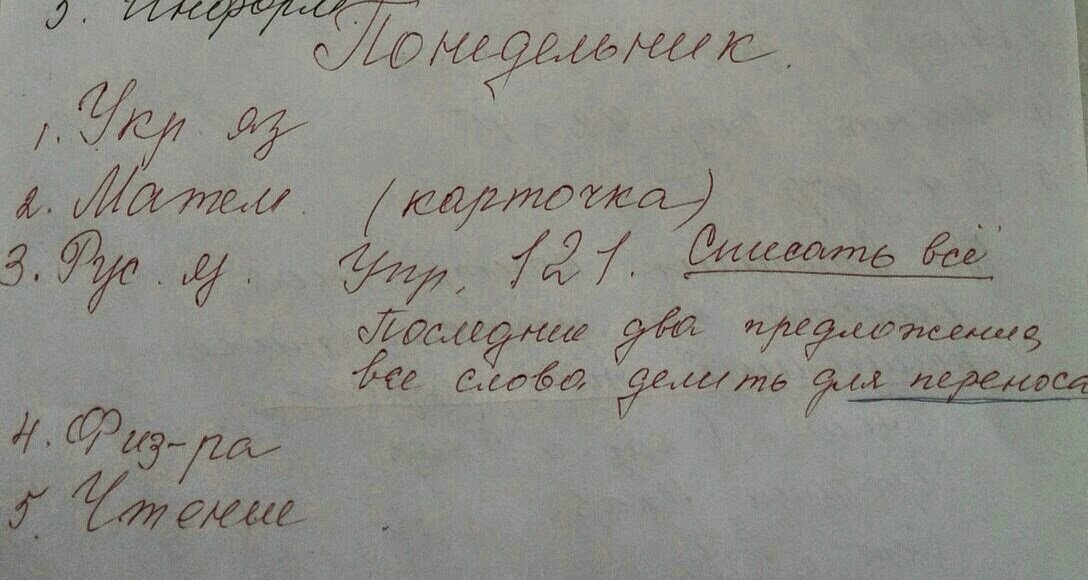 3. Информ.
Понедельник.
1. Укр. яз
2. Матем. (карточка)
3. Рус. яз. Упр. 121. Списать всё
Последние два предложения
все слова делить для переноса
4. Физ-ра
5. Чтение